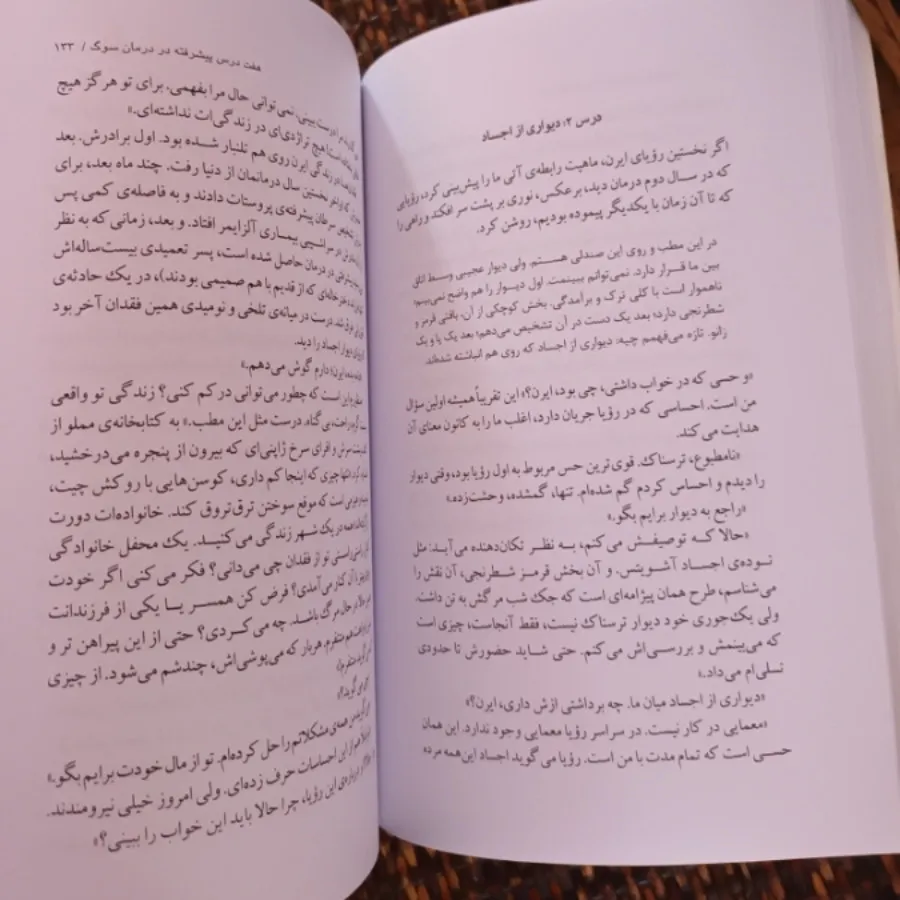 درس ۲: دیواری از اجساد
اگر نخستین رؤیای ایرن، ماهیت رابطه‌ی آتی ما را پیش‌بینی کرد، رؤیایی
که در سال دوم درمان دید، برعکس، نوری بر پشت سر افکند و راهی را
که تا آن زمان با یکدیگر پیموده بودیم، روشن کرد.
در این مطب و روی این صندلی هستم. ولی دیوار عجیبی وسط اتاق
بین ما قرار دارد. نمی‌توانم ببینمت. اول دیوار را هم واضح نمی‌بینم؛
ناهموار است با کلی ترک و برآمدگی. بخش کوچکی از آن، بافتی قرمز و
شطرنجی دارد؛ بعد یک دست در آن تشخیص می‌دهم؛ بعد یک پا و یک
زانو. تازه می‌فهمم چیه: دیواری از اجساد که روی هم انباشته شده‌اند.
«و حسی که در خواب داشتی، چی بود، ایرن؟» این تقریباً همیشه اولین سؤال
من است. احساسی که در رؤیا جریان دارد، اغلب ما را به کانون معنای آن
هدایت می‌کند.
«نامطبوع، ترسناک. قوی‌ترین حس مربوط به اول رؤیا بود، وقتی دیوار
را دیدم و احساس کردم گم شده‌ام. تنها، گمشده، وحشت‌زده.»
«راجع به دیوار برایم بگو.»
«حالا که توصیفش می‌کنم، به نظر تکان‌دهنده می‌آید: مثل
توده‌ی اجساد آشویتس. و آن بخش قرمز شطرنجی، آن نقش را
می‌شناسم، طرح همان پیژامه‌ای است که جک شب مرگش به تن داشت.
ولی یک‌جوری خود دیوار ترسناک نیست، فقط آنجاست، چیزی است
که می‌بینمش و بررسی‌اش می‌کنم. حتی شاید حضورش تا حدودی
تسلی‌ام می‌داد.»
«دیواری از اجساد میان ما. چه برداشتی ازش داری، ایرن؟»
«معمایی در کار نیست. در سراسر رؤیا معمایی وجود ندارد. این همان
حسی است که تمام مدت با من است. رؤیا می‌گوید اجساد این‌همه مرده
هفت درس پیشرفته در درمان سوگ / ۱۳۳
مرا درست ببینی، نمی‌توانی حال مرا بفهمی. برای تو هرگز هیچ
هیچ تراژدی‌ای در زندگی‌ات نداشته‌ای.»
زندگی ایرن روی هم تلنبار شده بود. اول برادرش. بعد
نخستین سال درمانمان از دنیا رفت. چند ماه بعد، برای
سرطان پیشرفته‌ی پروستات دادند و به فاصله‌ی کمی پس
در سراشیبی بیماری آلزایمر افتاد. و بعد، زمانی که به نظر
در درمان حاصل شده است، پسر تعمیدی بیست‌ساله‌اش
که از قدیم با هم صمیمی بودند)، در یک حادثه‌ی
شد. درست در میانه‌ی تلخی و نومیدی همین فقدان آخر بود
دیوار اجساد را دید.
ایرن؛ دارم گوش می‌دهم.»
این است که چطور می‌توانی درکم کنی؟ زندگی تو واقعی
راحت، بی‌گناه. درست مثل این مطب.» به کتابخانه‌ی مملو از
پشت سرش و افرای سرخ ژاپنی‌ای که بیرون از پنجره می‌درخشید،
تنها چیزی که اینجا کم داری، کوسن‌هایی با روکش چیت،
است که موقع سوختن ترق‌تروق کند. خانواده‌ات دورت
همه در یک شهر زندگی می‌کنید. یک محفل خانوادگی
راستی راستی تو از فقدان چی می‌دانی؟ فکر می‌کنی اگر خودت
با آن کنار می‌آمدی؟ فرض کن همسر یا یکی از فرزندانت
حالا در حال مرگ باشد. چه می‌کردی؟ حتی از این پیراهن تر و
هم متنفرم. هربار که می‌پوشی‌اش، چندشم می‌شود. از چیزی
می‌گوید؟»
من همه‌ی مشکلاتم را حل کرده‌ام. تو از مال خودت برایم بگو.»
هم از این احساسات حرف زده‌ای. ولی امروز خیلی نیرومندند.
درباره‌ی این رؤیا، چرا حالا باید این خواب را ببینی؟»